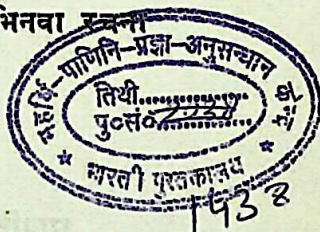 भिनवा रचना
महर्षि-पाणिनि-प्रज्ञा-अनुसन्धान
तिथी................
पु०सं०
भारती पुस्तकालय
1438